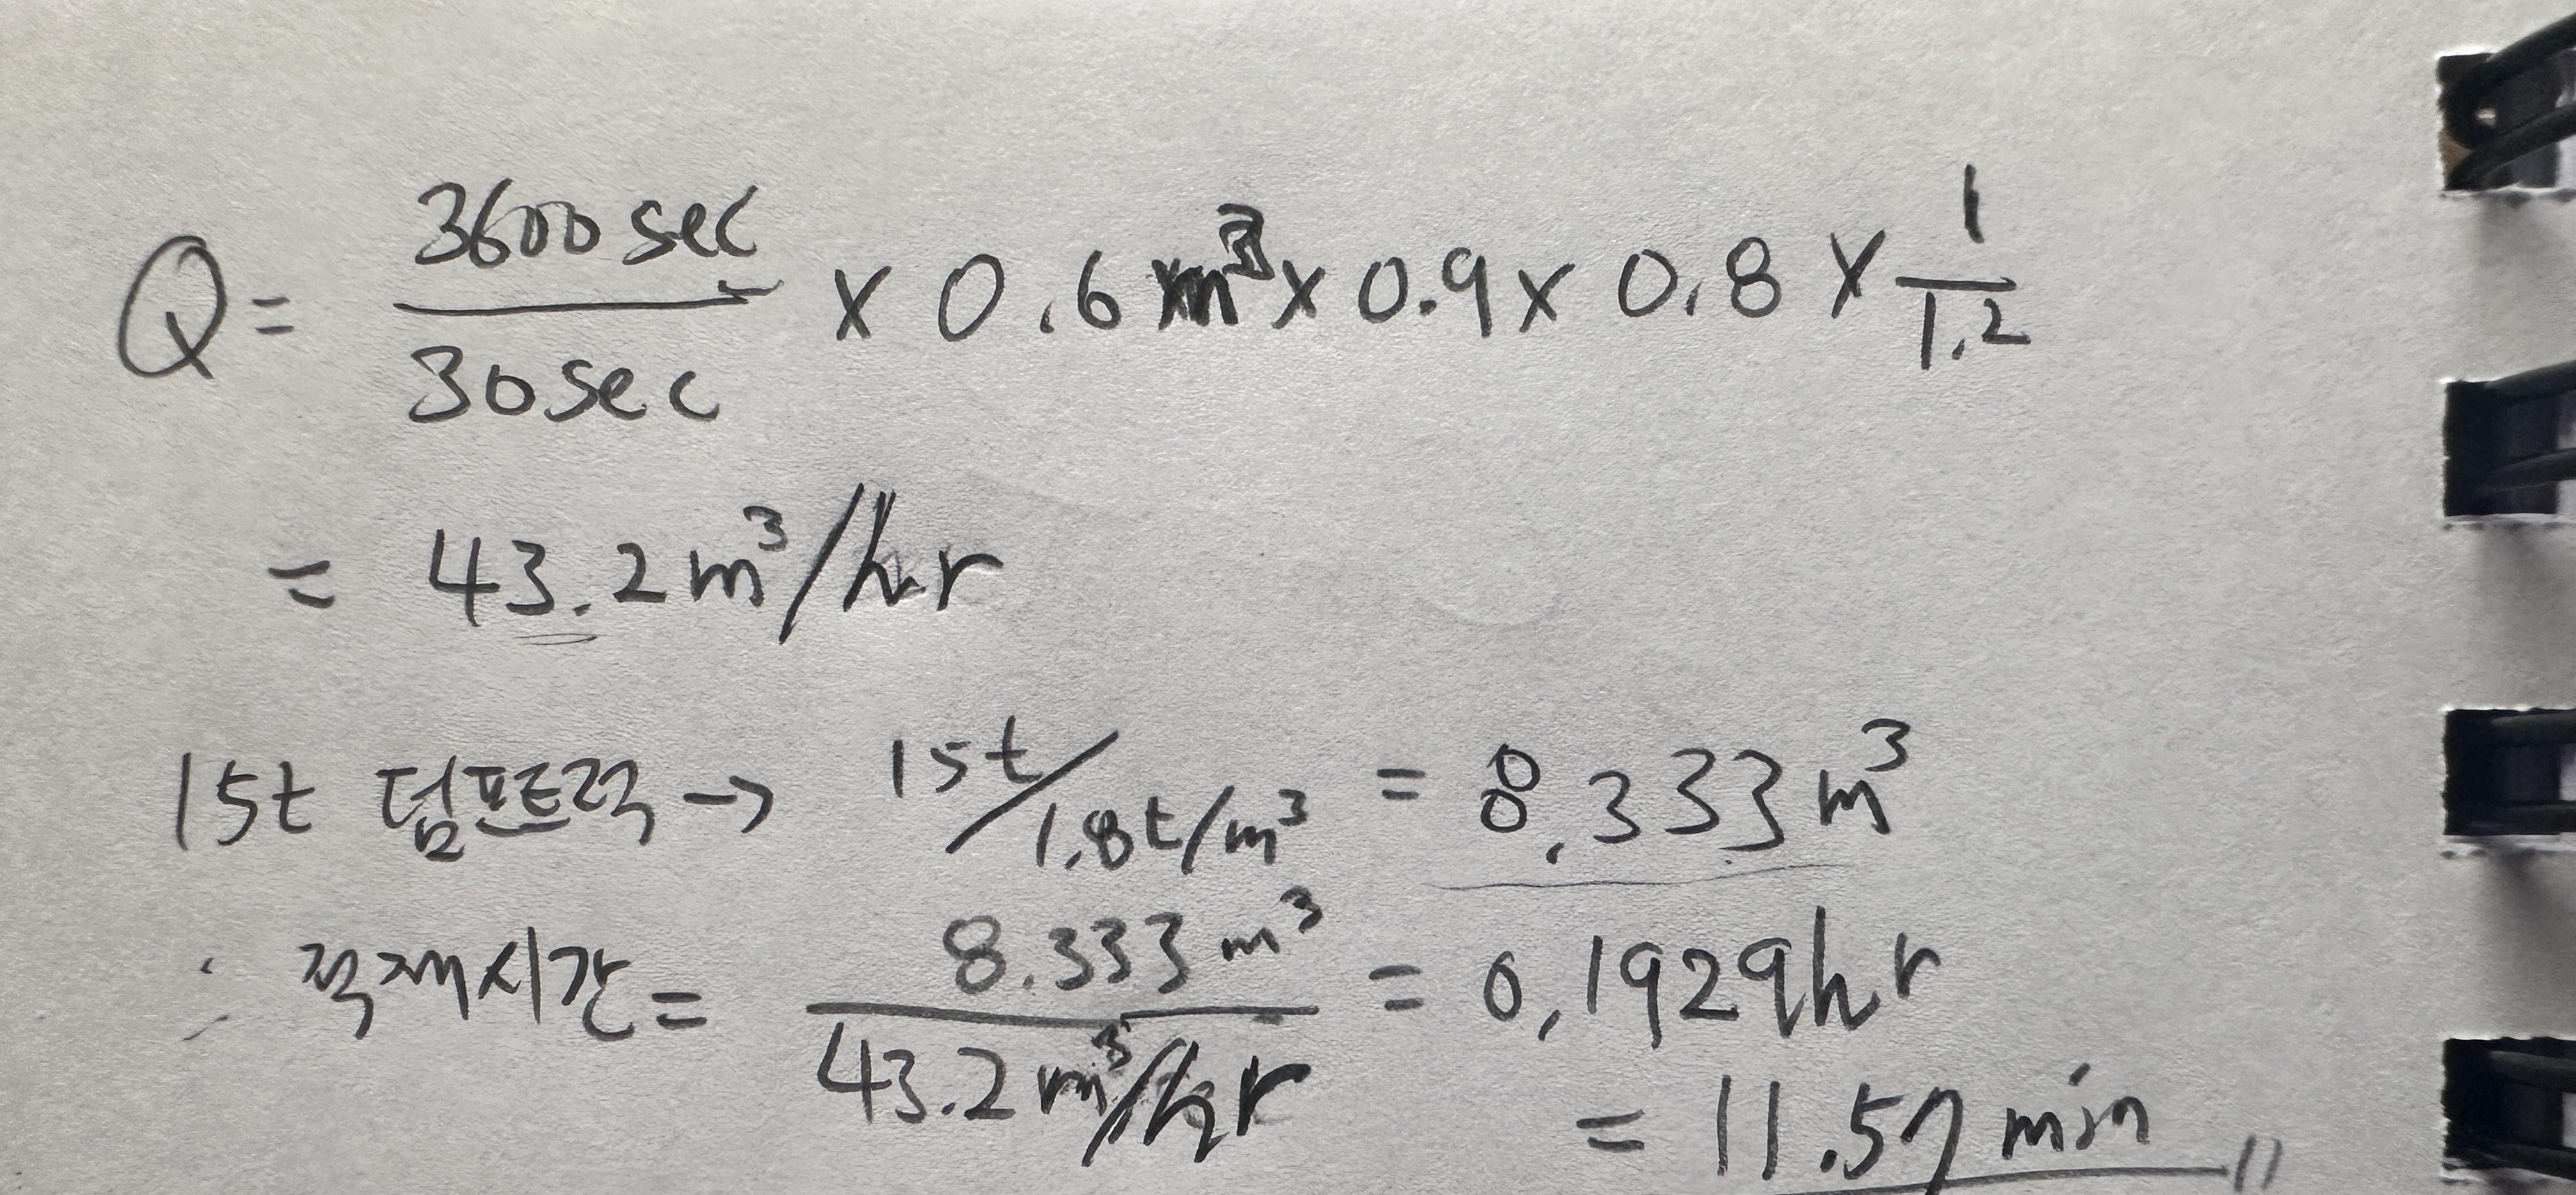 Q = 3600 sec / 30 sec × 0.6 m³ × 0.9 × 0.8 × 1/1.2
= 43.2 m³/hr
15t 덤프트럭 → 15t / 1.8t/m³ = 8.333 m³
∴ 적재시간 = 8.333 m³ / 43.2 m³/hr = 0.1929 hr
= 11.57 min 〃